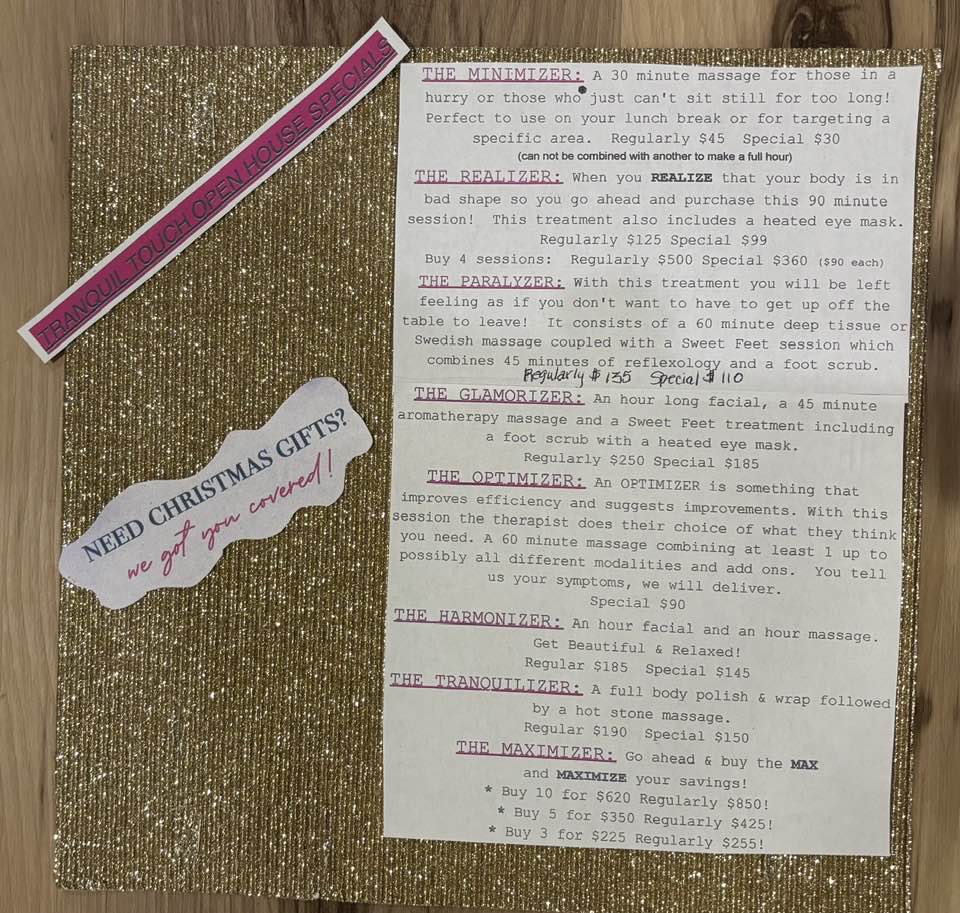 TRANQUIL TOUCH OPEN HOUSE SPECIALS
NEED CHRISTMAS GIFTS?
we got you covered!
THE MINIMIZER: A 30 minute massage for those in a
hurry or those who just can't sit still for too long!
Perfect to use on your lunch break or for targeting a
specific area. Regularly $45 Special $30
(can not be combined with another to make a full hour)
THE REALIZER: When you REALIZE that your body is in
bad shape so you go ahead and purchase this 90 minute
session! This treatment also includes a heated eye mask.
Regularly $125 Special $99
Buy 4 sessions: Regularly $500 Special $360 ($90 each)
THE PARALYZER: With this treatment you will be left
feeling as if you don't want to have to get up off the
table to leave! It consists of a 60 minute deep tissue or
Swedish massage coupled with a Sweet Feet session which
combines 45 minutes of reflexology and a foot scrub.
Regularly $135 Special $110
THE GLAMORIZER: An hour long facial, a 45 minute
aromatherapy massage and a Sweet Feet treatment including
a foot scrub with a heated eye mask.
Regularly $250 Special $185
THE OPTIMIZER: An OPTIMIZER is something that
improves efficiency and suggests improvements. With this
session the therapist does their choice of what they think
you need. A 60 minute massage combining at least 1 up to
possibly all different modalities and add ons. You tell
us your symptoms, we will deliver.
Special $90
THE HARMONIZER: An hour facial and an hour massage.
Get Beautiful & Relaxed!
Regular $185 Special $145
THE TRANQUILIZER: A full body polish & wrap followed
by a hot stone massage.
Regular $190 Special $150
THE MAXIMIZER: Go ahead & buy the MAX
and MAXIMIZE your savings!
* Buy 10 for $620 Regularly $850!
* Buy 5 for $350 Regularly $425!
* Buy 3 for $225 Regularly $255!